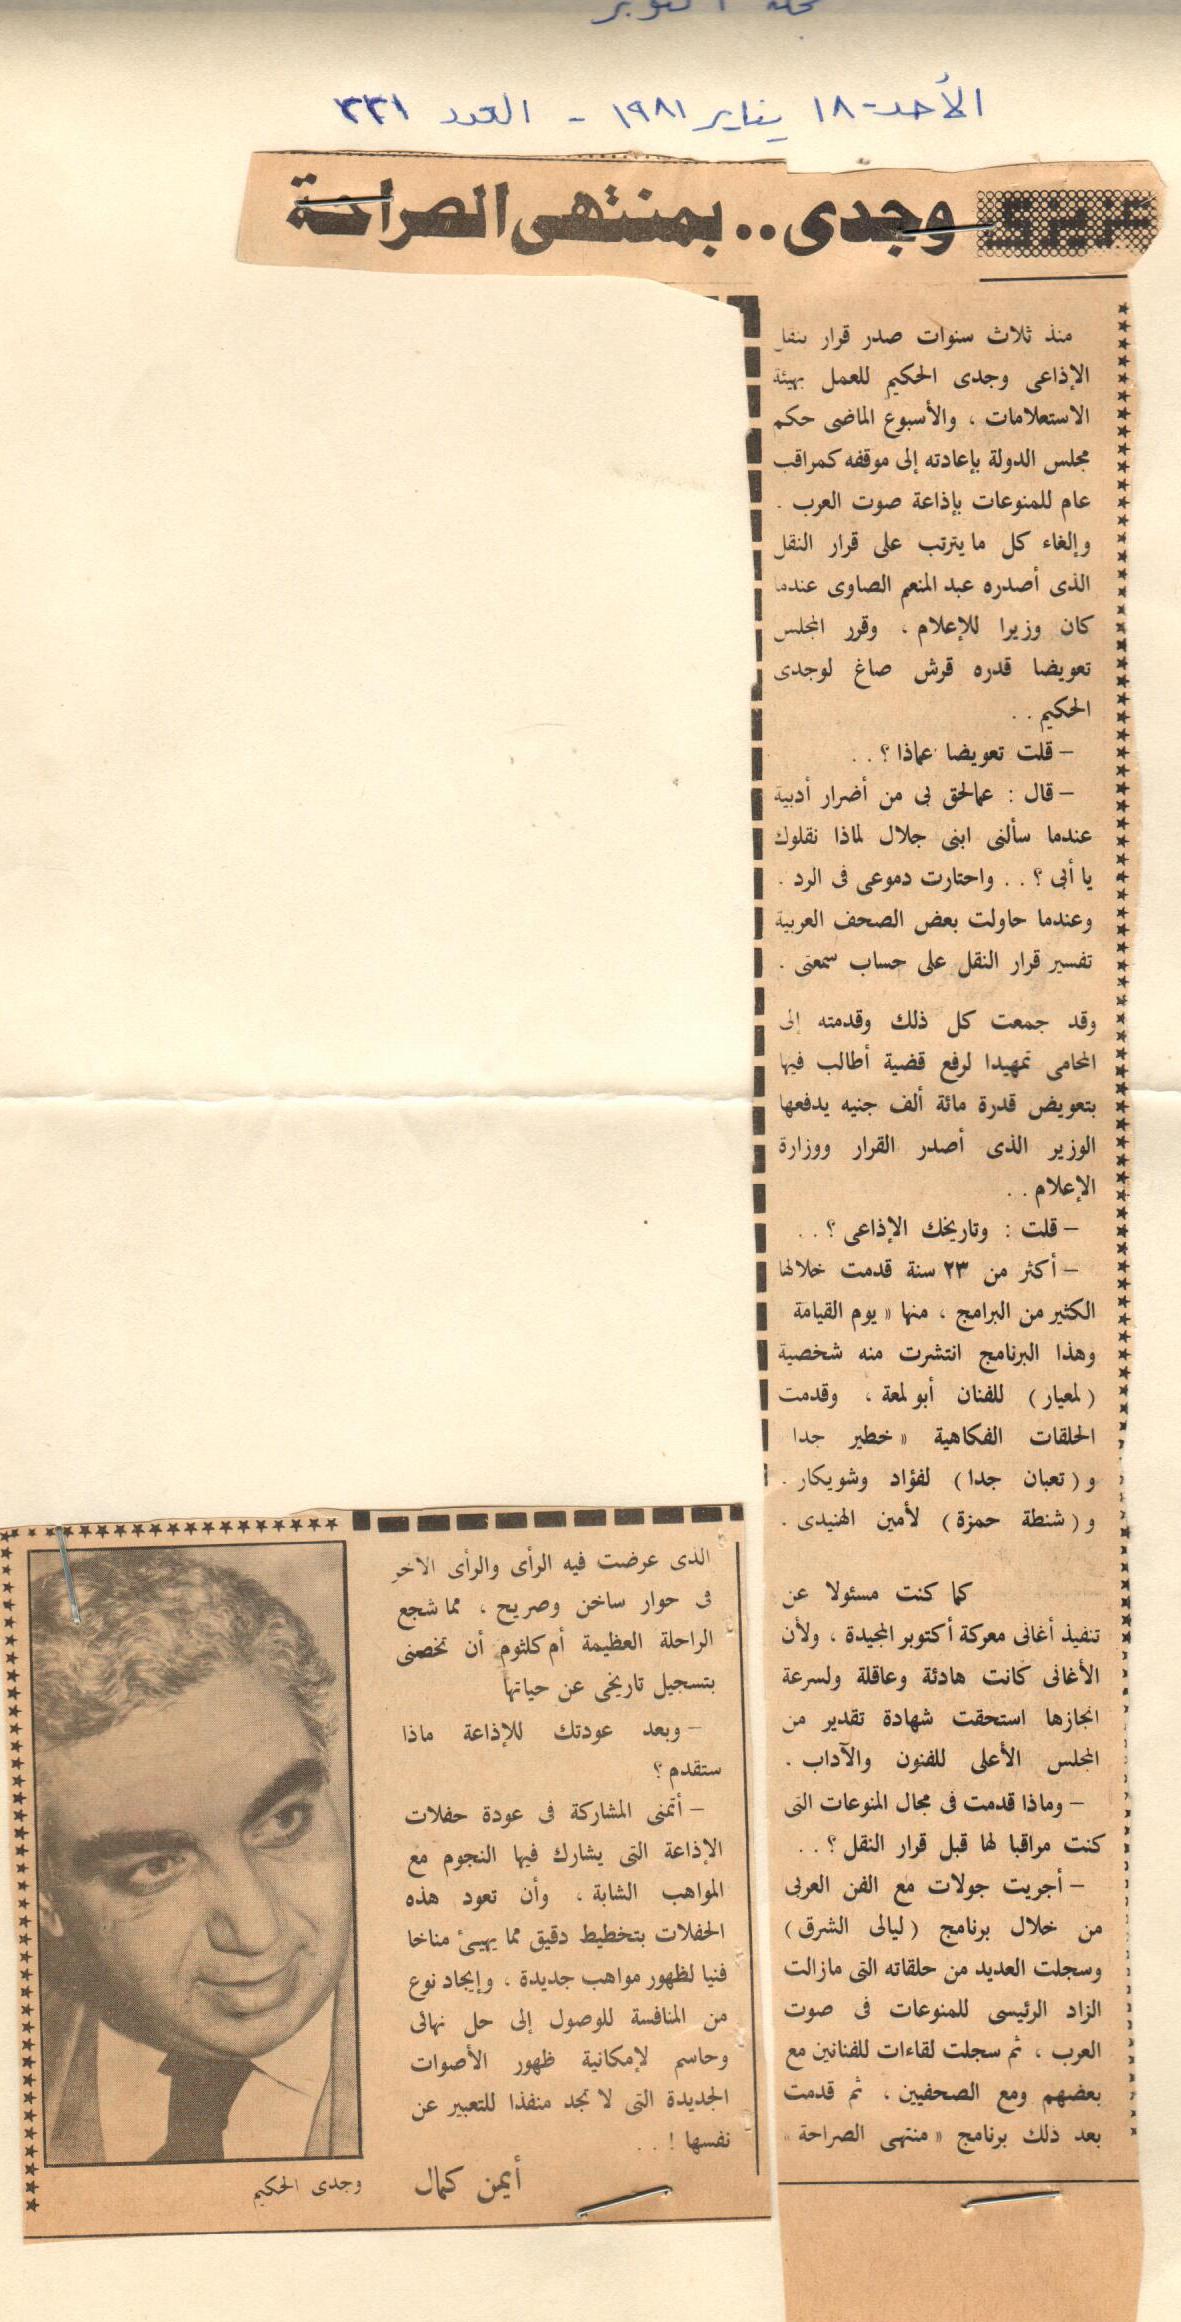 مجلة أكتوبر
الأحد - ١٨ يناير ١٩٨١ - العدد ٢٢١
وجدى .. بمنتهى الصراحة
منذ ثلاث سنوات صدر قرار بنقل
الإذاعى وجدى الحكيم للعمل بهيئة
الاستعلامات ، والأسبوع الماضى حكم
مجلس الدولة بإعادته إلى موقفه كمراقب
عام للمنوعات بإذاعة صوت العرب .
وإلغاء كل ما يترتب على قرار النقل
الذى أصدره عبد المنعم الصاوى عندما
كان وزيرا للإعلام ، وقرر المجلس
تعويضا قدره قرش صاغ لوجدى
الحكيم . .
– قلت تعويضا عماذا ؟ . .
– قال : عمالحق بى من أضرار أدبية
عندما سألنى ابنى جلال لماذا نقلوك
يا أبى ؟ . . واحتارت دموعى فى الرد .
وعندما حاولت بعض الصحف العربية
تفسير قرار النقل على حساب سمعتى .
وقد جمعت كل ذلك وقدمته إلى
المحامى تمهيدا لرفع قضية أطالب فيها
بتعويض قدرة مائة ألف جنيه يدفعها
الوزير الذى أصدر القرار ووزارة
الإعلام . .
– قلت : وتاريخك الإذاعى ؟ . .
– أكثر من ٢٣ سنة قدمت خلالها
الكثير من البرامج ، منها « يوم القيامة
وهذا البرنامج انتشرت منه شخصية
( لمعيار ) للفنان أبو لمعة ، وقدمت
الحلقات الفكاهية « خطير جدا
و ( تعبان جدا ) لفؤاد وشويكار .
و ( شنطة حمزة ) لأمين الهنيدى .
كما كنت مسئولا عن
تنفيذ أغانى معركة أكتوبر المجيدة ، ولأن
الأغانى كانت هادئة وعاقلة ولسرعة
انجازها استحقت شهادة تقدير من
المجلس الأعلى للفنون والآداب .
– وماذا قدمت فى مجال المنوعات التى
كنت مراقبا لها قبل قرار النقل ؟ . .
– أجريت جولات مع الفن العربى
من خلال برنامج ( ليالى الشرق )
وسجلت العديد من حلقاته التى مازالت
الزاد الرئيسى للمنوعات فى صوت
العرب ، ثم سجلت لقاءات للفنانين مع
بعضهم ومع الصحفيين ، ثم قدمت
بعد ذلك برنامج « منتهى الصراحة »
الذى عرضت فيه الرأى والرأى الآخر
فى حوار ساخن وصريح ، مما شجع
الراحلة العظيمة أم كلثوم أن تخصنى
بتسجيل تاريخى عن حياتها
– وبعد عودتك للإذاعة ماذا
ستقدم ؟
– أتمنى المشاركة فى عودة حفلات
الإذاعة التى يشارك فيها النجوم مع
المواهب الشابة ، وأن تعود هذه
الحفلات بتخطيط دقيق مما يهيئ مناخا
فنيا لظهور مواهب جديدة ، وإيجاد نوع
من المنافسة للوصول إلى حل نهائى
وحاسم لإمكانية ظهور الأصوات
الجديدة التى لا تجد منفذا للتعبير عن
نفسها ! . .
أيمن كمال
وجدى الحكيم